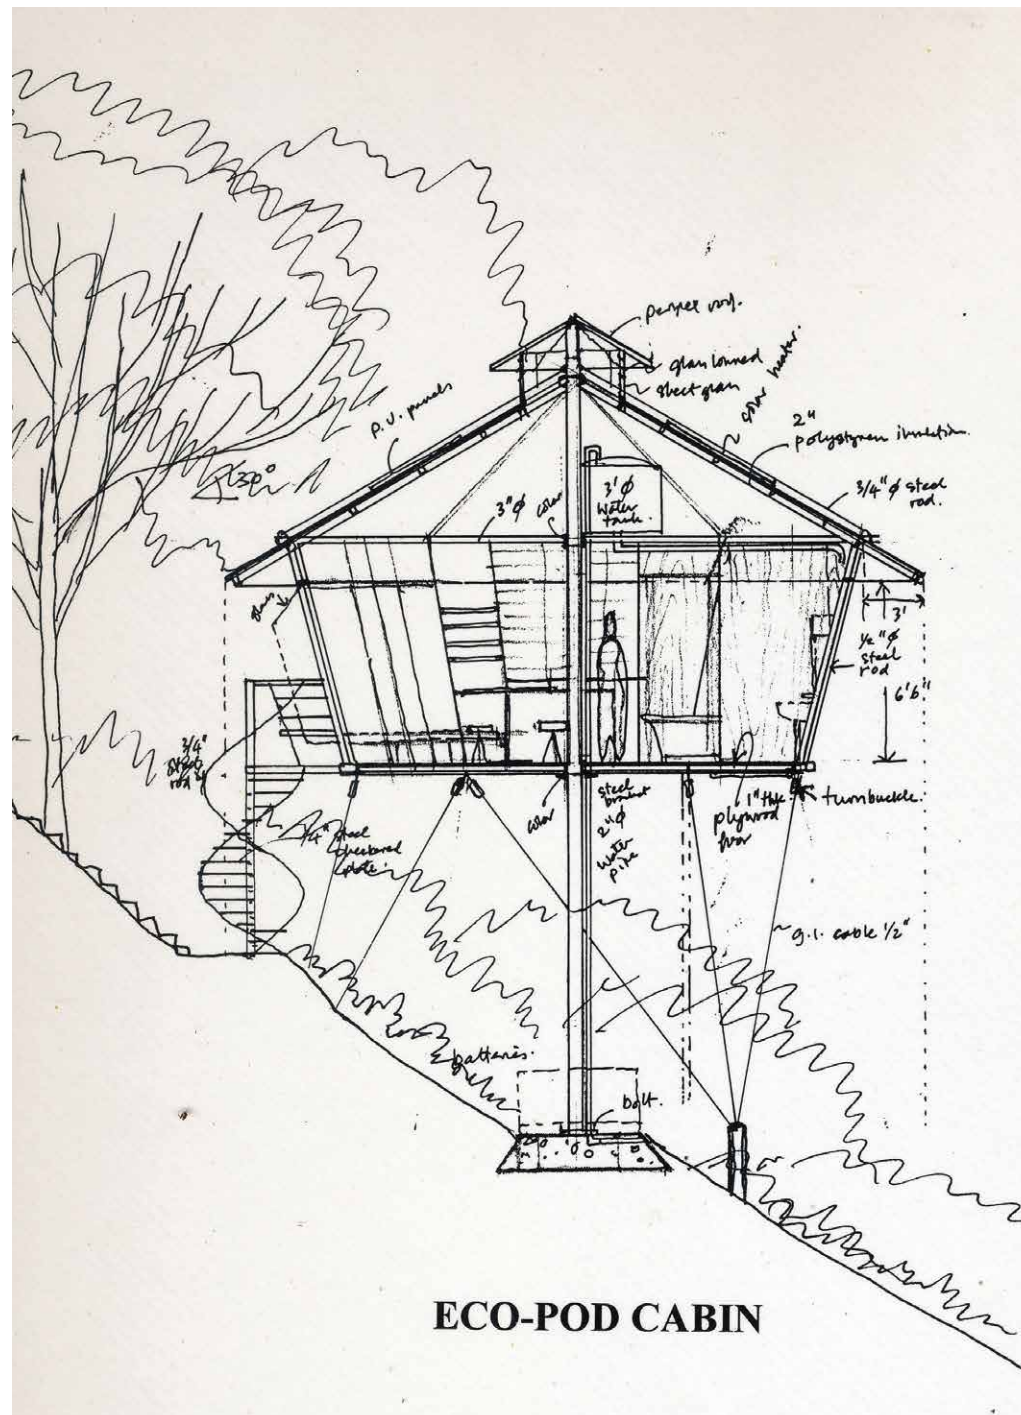 perspex roof.
glass louvred
sheet glass
solar heater.
2"
polystyrene insulation.
P.V. panels
30°
3/4" φ steel
rod.
3" φ
colar
3' φ
Water
tank.
glass
3'
1/2" φ
steel
rod
6'6"
3/4"
steel
rod
1/4" steel
checkered
plate.
colar
steel
bracket
2" φ
Water
pipe
1" thk
plywood
floor
turnbuckle.
g.i. cable 1/2"
batteries.
bolt.
ECO-POD CABIN